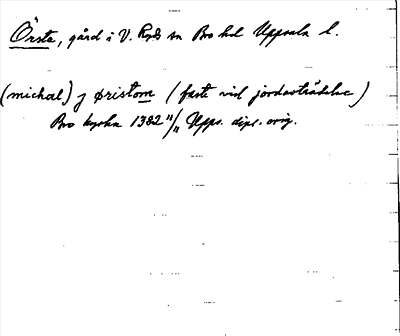 Örsta, gård i V. Ryds sn Bro hd Uppsala l.
(michal) j øristom (faste vid jordaöträdelse)
Bro kyrka 1382 11/11 Upps. dipl. orig.